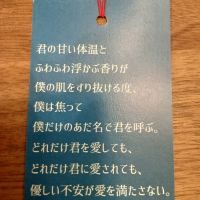 君の甘い体温と
ふわふわ浮かぶ香りが
僕の肌をすり抜ける度、
僕は焦って
僕だけのあだ名で君を呼ぶ。
どれだけ君を愛しても、
どれだけ君に愛されても、
優しい不安が愛を満たさない。